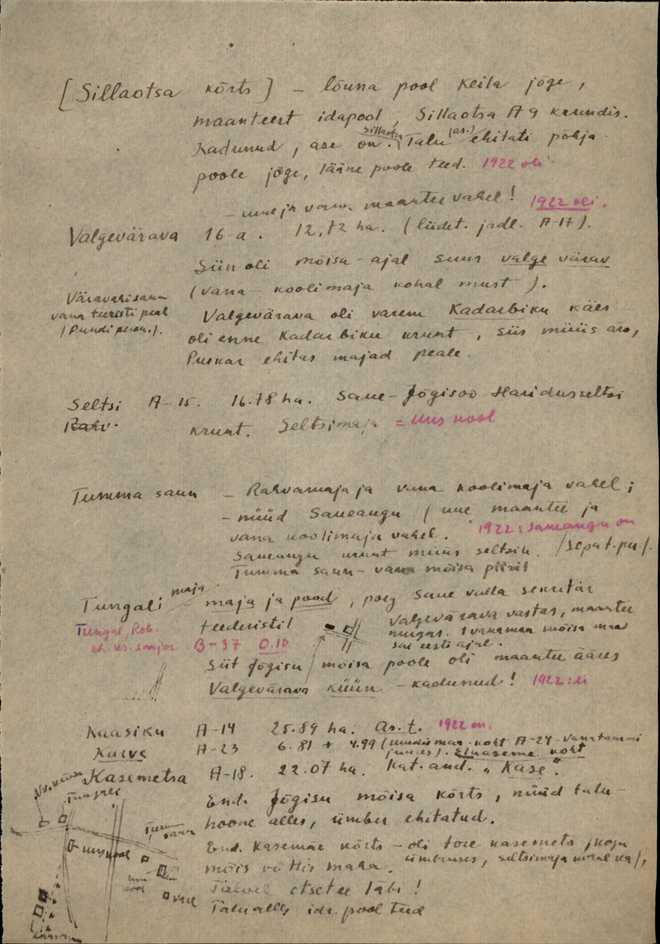 [Sillaotsa kõrts] – lõuna pool Keila jõge,
maanteest idapool, Sillaotsa A 9 krundis.
Kadunud, ase on. Sillaotsa Talu (as.) ehitati põhja
poole jõge, lääne poole teed. 1922 oli
– uue ja vana maantee vahel! 1922 oli.
Valgevärava 16-a. 12,72 ha. (liidet. jadl. A-17).
Siin oli mõisa-ajal suur valge värav
(vana koolimaja kohal must).
Väravahi saun
vana teeristi peal
Valgevärava oli varem Kadarbiku käes
oli enne Kadarbiku krunt, siis müüs ära,
Puskar ehitas majad peale.
Seltsi A-15. 16.78 ha. Saue-Jõgisoo Haridusseltsi
Rahv. krunt. Seltsimaja = Uus kool
Tumma saun – Rahvamaja ja vana koolimaja vahel;
– nüüd Saueaugu (uue maantee ja
vana koolimaja vahel. 1922: Saueaugu on
Saueaugu krunt müüs seltsile. /Sepat. pu/.
Tumma saun – vana mõisa piiril
Tungali maja maja ja pood, poeg Saue valla sekretär
Tungal, Rob. teederistil
B-37 0.10
Valgevärava vastas, maantee
nurgas.
sai eesti ajal.
Siit Jõgisu mõisa poole oli maantee ääres
Valgevärava küün – kadunud! 1922 oli
Kaasiku A-14 25.89 ha. As. t. 1922 on.
Karve A-23 6.81 + 4.99
Eluaseme koht
Kasemetsa A-18. 22.07 ha. Rat. and. „Kase".
End. Jõgisu mõisa kõrts, nüüd talu-
hoone alles, ümber ehitatud.
End. Kasemäe kõrts – oli tore kasemets / kogu
mõis võttis maha. ümbruses, seltsimaja kohal ka/,
Talu alles ida pool teed
Tungali
uus kool